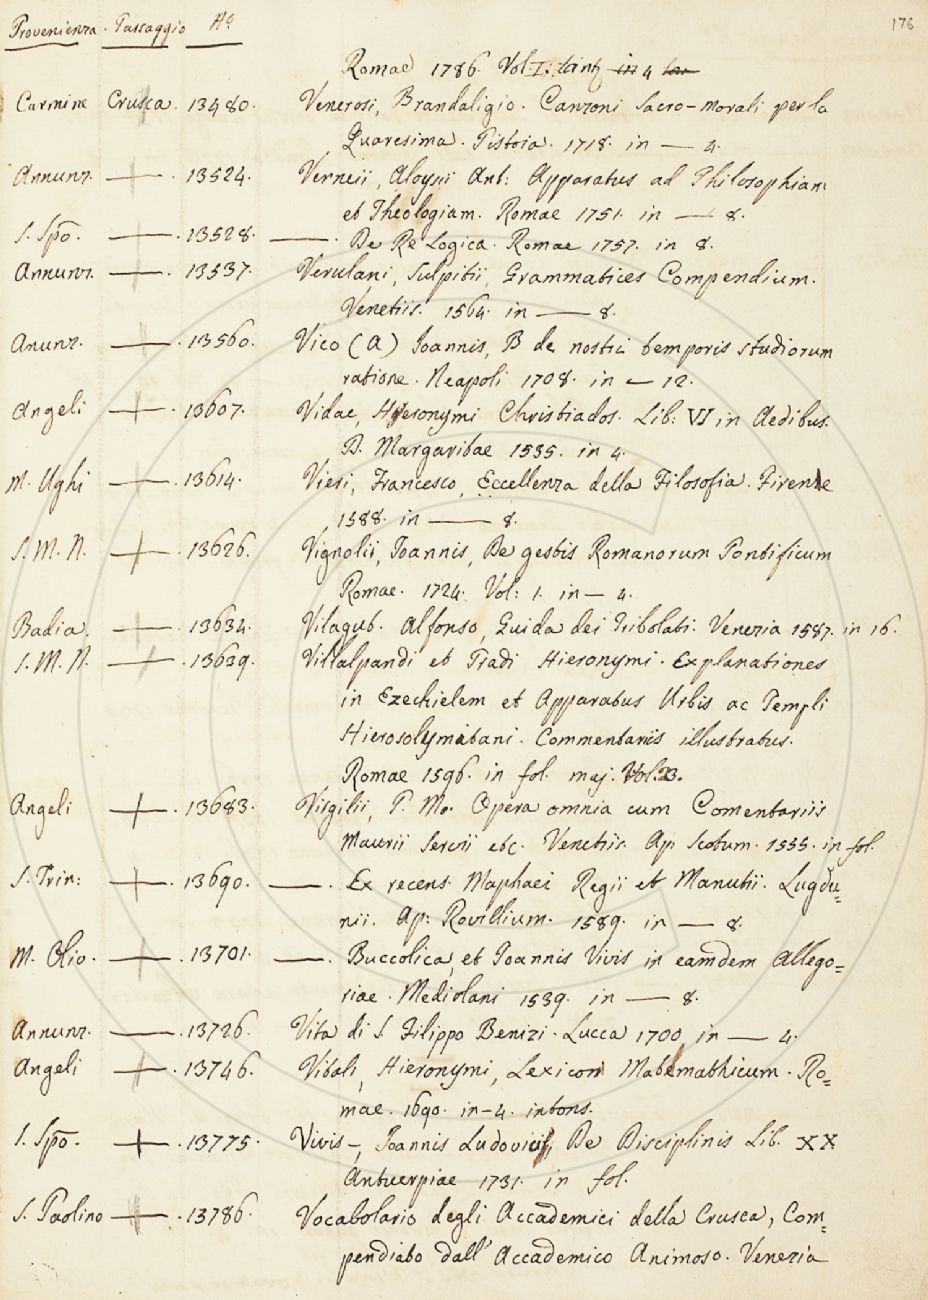 Provenienza. Passaggio Nº 176
Romae 1786. Vol. I. in 4
Carmine Crusca. 13480. Venerosi, Brandaligio. Canzoni Sacro-morali per la
Quaresima. Pistoia. 1718. in — 4.
Annunz. — . 13524. Verneii, Aloysii Ant: Apparatus ad Philosophiam
et Theologiam. Romae 1751. in — 8.
S. Spō. — . 13528. — . De Re Logica. Romae 1757. in 8.
Annunz. — . 13537. Verulani, Sulpitii, Grammatices Compendium.
Venetiis. 1564. in — 8.
Anunz. — . 13560. Vico (A) Joannis, B de nostri temporis studiorum
ratione. Neapoli 1708. in — 12.
Angeli — . 13607. Vidae, Hieronymi Christiados. Lib: VI in Aedibus.
D. Margaritae 1535. in 4.
M. Ughi — . 13614. Vieri, Francesco, Eccellenza della Filosofia. Firenze
1588. in — 8.
S. M. N. — . 13626. Vignolii, Joannis, De gestis Romanorum Pontificum
Romae. 1724. Vol: 1. in — 4.
Badia. — . 13634. Vilagut. Alfonso, Guida dei Tribolati. Venezia 1587. in 16.
S. M. N. — . 13639. Villalpandi et Pradi Hieronymi. Explanationes
in Ezechielem et Apparatus Urbis ac Templi
Hierosolymitani. Commentariis illustratus.
Romae 1596. in fol. maj. Vol. 3.
Angeli — . 13683. Virgilii, P. Mo. Opera omnia cum Comentariis
Maurii Servii etc. Venetiis. Ap. Scotum. 1555. in fol.
S. Trin: — . 13690. — . Ex recens. Maphaei Regii et Manutii. Lugdu=
nii. Ap: Rovillium. 1589. in — 8.
M. Oliv. — . 13701. — . Buccolica, et Joannis Vivis in eamdem Allego=
riae. Mediolani 1539. in — 8.
Annunz. — . 13726. Vita di S. Filippo Benizi. Lucca 1700. in — 4.
Angeli — . 13746. Vitali, Hieronymi, Lexicon Mathemathicum. Ro=
mae. 1690. in-4. intons.
S. Spō. — . 13775. Vivis —, Joannis Ludovici, De Disciplinis Lib. XX
Antuerpiae 1731. in fol.
S. Paolino — . 13786. Vocabolario degli Accademici della Crusca, Com=
pendiato dall' Accademico Animoso. Venezia